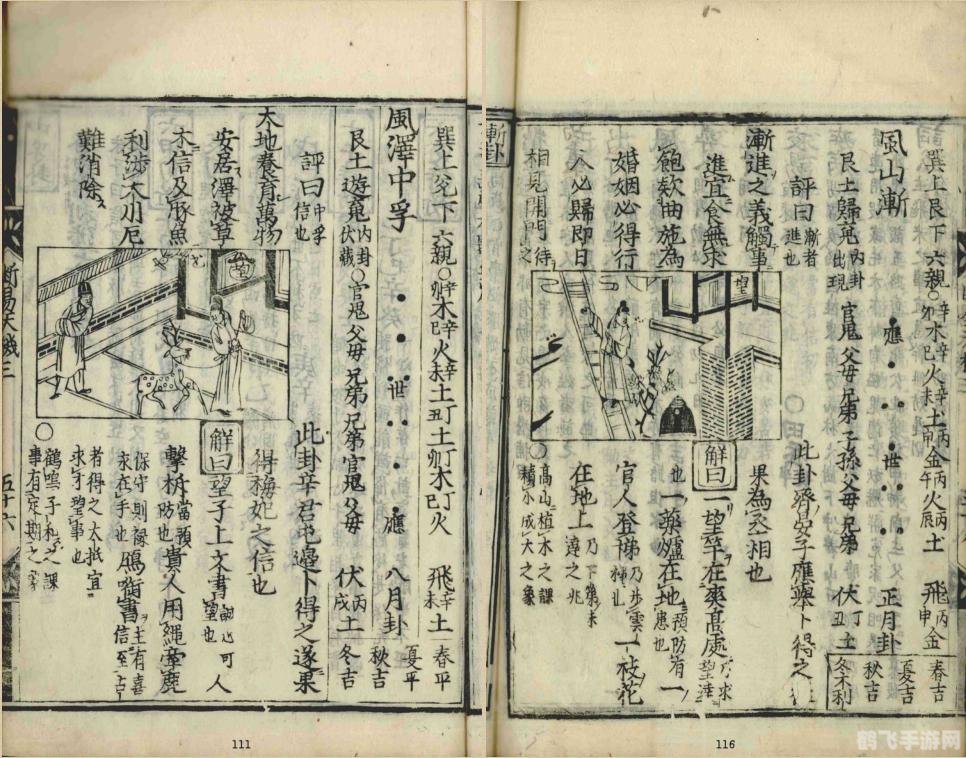 巽上兌下 六親○辛卯木辛巳火辛未土丁丑土丁卯木丁巳火 飛辛未土
風澤中孚 世 應 八月卦
艮土遊魂內卦伏藏○官鬼父母兄弟兄弟官鬼父母 伏丙戌土
春平
夏平
秋吉
冬吉
評曰中孚信也
天地養育萬物
安居澤被草
木信及豚魚
利涉大川厄
難消除
此卦辛君屯邊卜得之遂果
得梅妃之信也
解曰望子上文書謝也可望也人
擊柝當預防也貴人用繩牽鹿
保守則祿求在手也鴈啣書主有喜信至
者得之大抵宜求才望事也
○鶴鳴子和之課
事有定期之象
斷易天機三
五十六
111
漸卦
巽上艮下 六親○辛卯木辛巳火辛未土丙申金丙午火丙辰土 飛丙申金
風山漸 應 世 正月卦
艮土歸魂內卦出現 官鬼父母兄弟子孫父母兄弟 伏丁丑土
春吉
夏吉
秋吉
冬不利
評曰漸者進也
漸進之義觸事
進宜食無求
飽欸曲施為
婚姻必得行
人必歸即日
相見開門待之
望
此卦齊晏子應舉卜得之
果為丞相也
解曰一望竿在爽高處
也一藥爐在地預防有患也一
官人登梯乃步雲梯也一枝花
在地上乃下第未達之兆
○高山植木之課
積小成大之象
116
鶴飞手游网